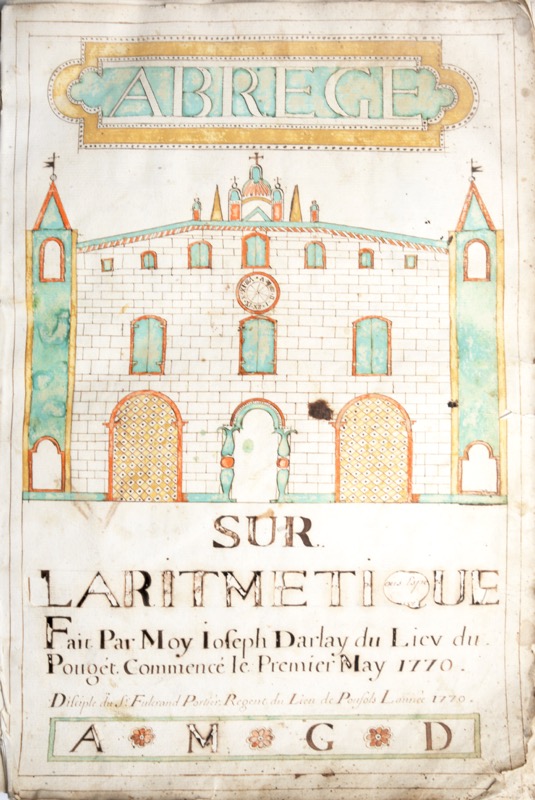 ABREGE
SUR
LARITMETIQUE
Fait Par Moy Ioseph Darlay du Liev du
Pouget. Commencé le Premier May 1770.
Disciple du Sr. Fulcrand Portier, Regent du Lieu de Poujols Lannée 1770.
A M G D